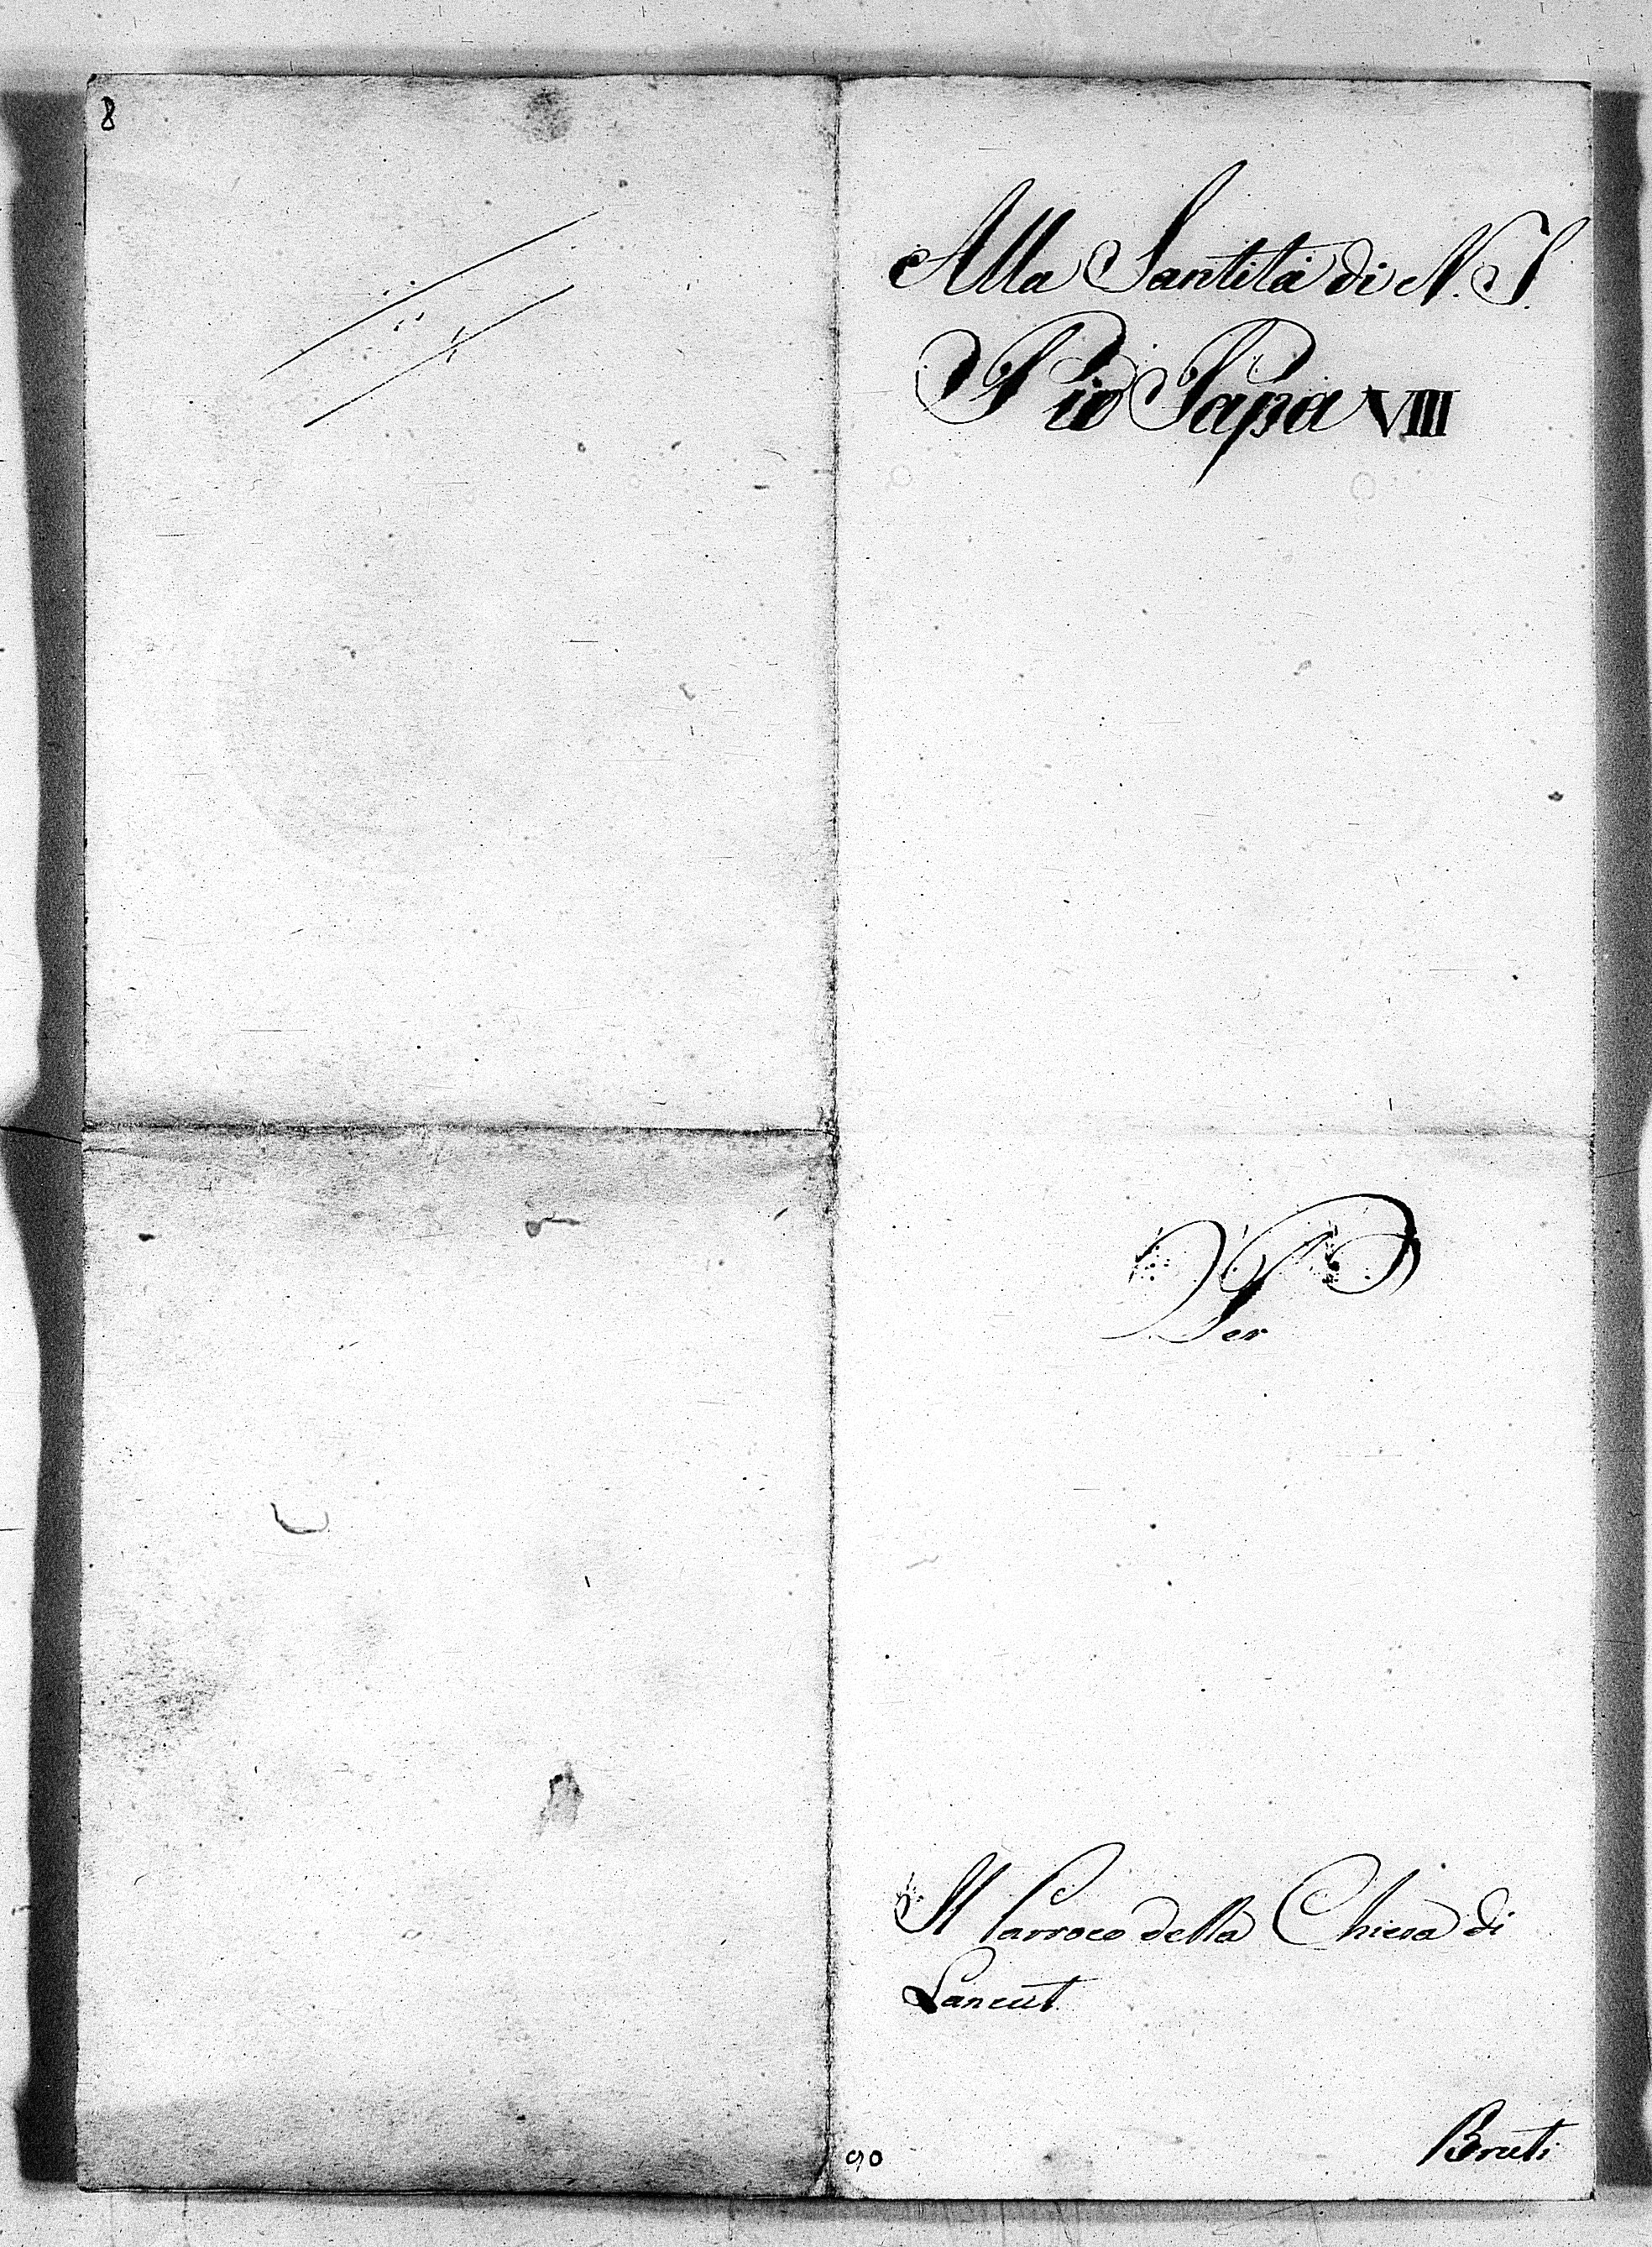 8
Alla Santità di N. S.
Pio Papa VIII
Per
Il Parroco della Chiesa di
Lancut
Bruti
90